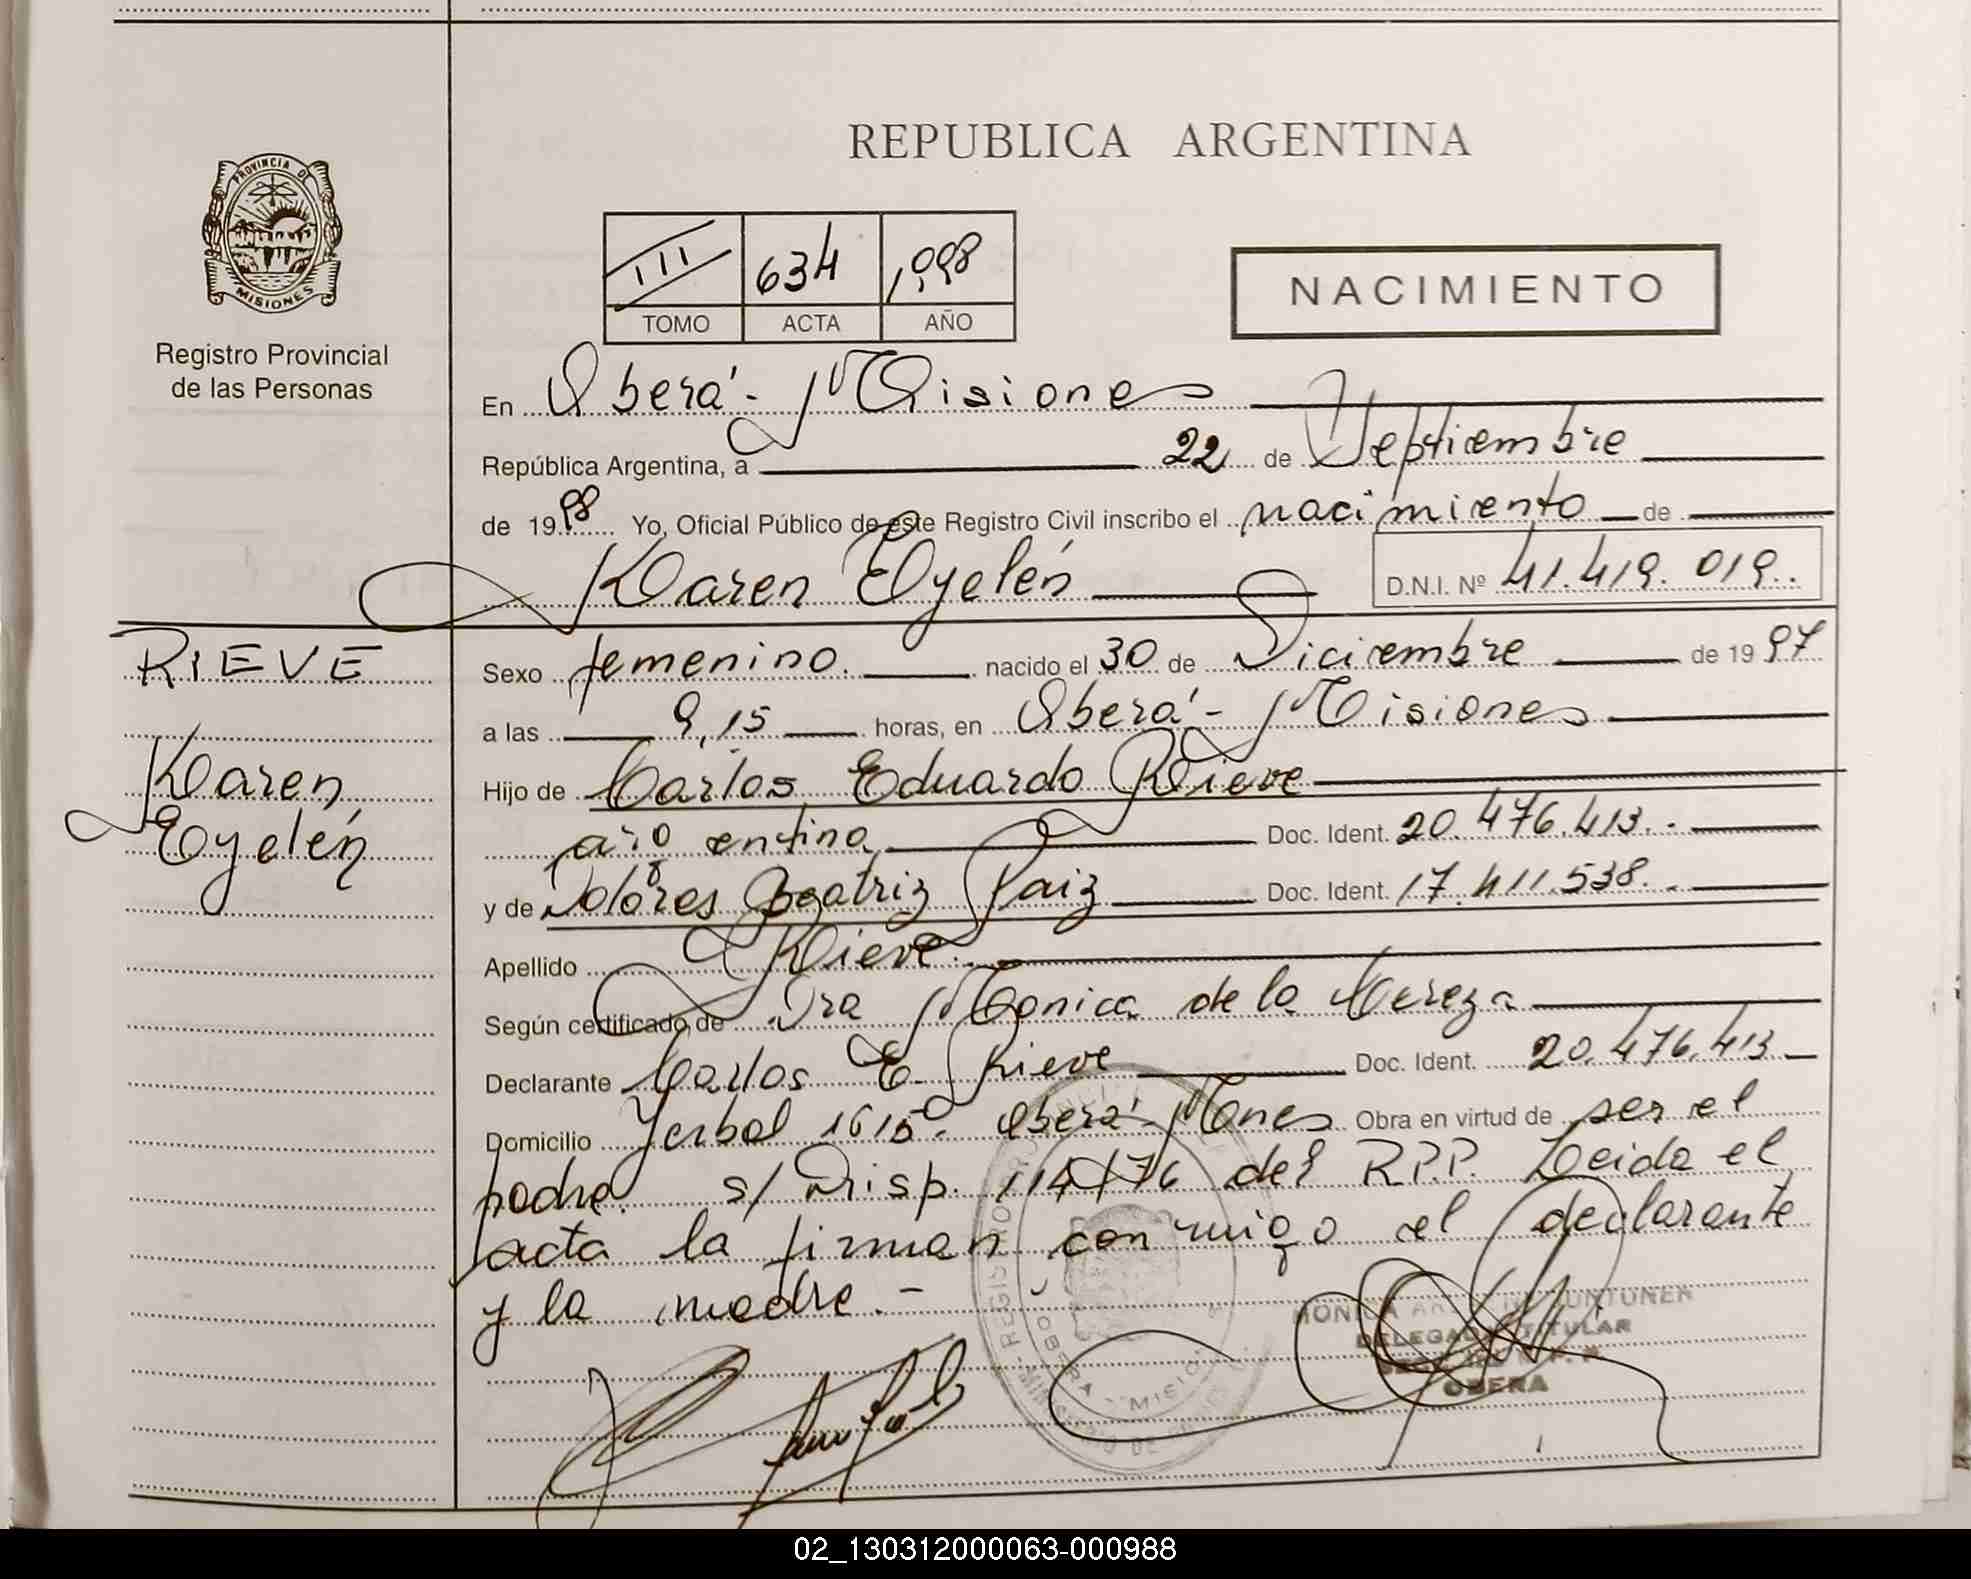 REPUBLICA ARGENTINA
PROVINCIA DE
MISIONES
Registro Provincial
de las Personas
III 634 1.998
TOMO ACTA AÑO
NACIMIENTO
En Oberá - Misiones
República Argentina, a 22 de Septiembre
de 1998 Yo, Oficial Público de este Registro Civil inscribo el nacimiento de
Karen Eyelén D.N.I. Nº 41.419.019.
RIEVE
Karen
Eyelén
Sexo femenino. nacido el 30 de Diciembre de 1997
a las 9,15 horas, en Oberá - Misiones
Hijo de Carlos Eduardo Rieve
argentino Doc. Ident. 20.476.413.-
y de Dolores Beatriz Paiz Doc. Ident. 17.411.538.-
Apellido Rieve.
Según certificado de Dra Monica de la
Declarante Carlos E. Rieve Doc. Ident. 20.476.413
Domicilio Yerbal 1615 - Oberá - Mnes Obra en virtud de ser el
padre. s/ Disp. 114/76 del R.P.P. Leida el
acta la firman conmigo el declarante
y la madre.-
MONICA
DELEGADA TITULAR
OBERA
02_130312000063-000988